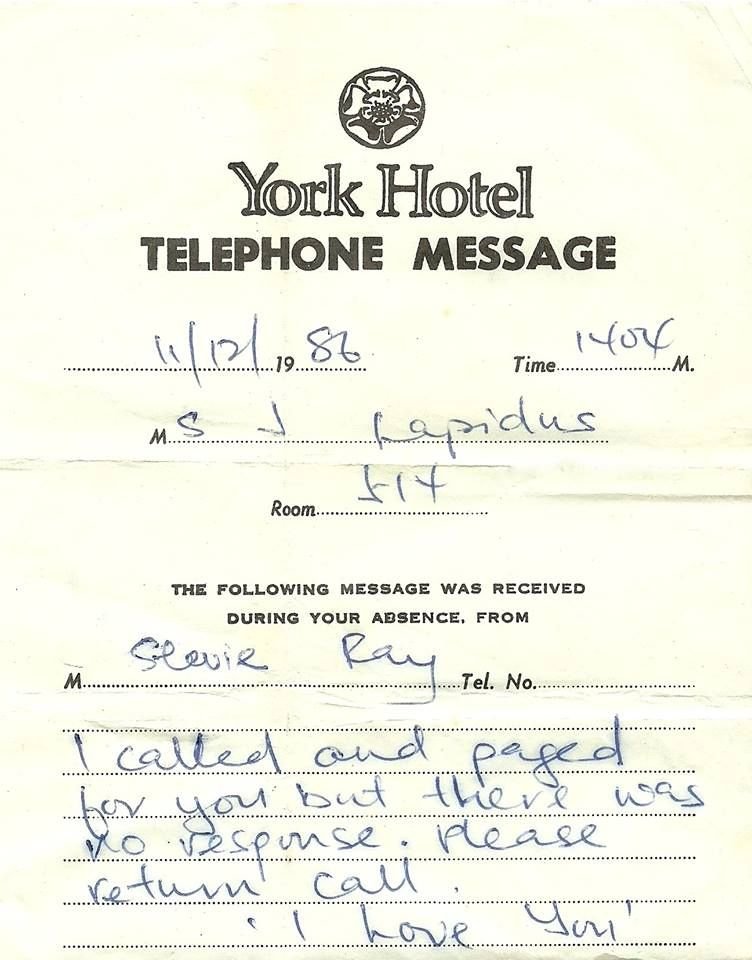 York Hotel
TELEPHONE MESSAGE
11/12/ 19 86 Time 1404 M.
M S J Lapidus
Room 514
THE FOLLOWING MESSAGE WAS RECEIVED
DURING YOUR ABSENCE, FROM
M Stevie Ray Tel. No.
I called and paged
for you but there was
no response. Please
return call.
'I Love You'